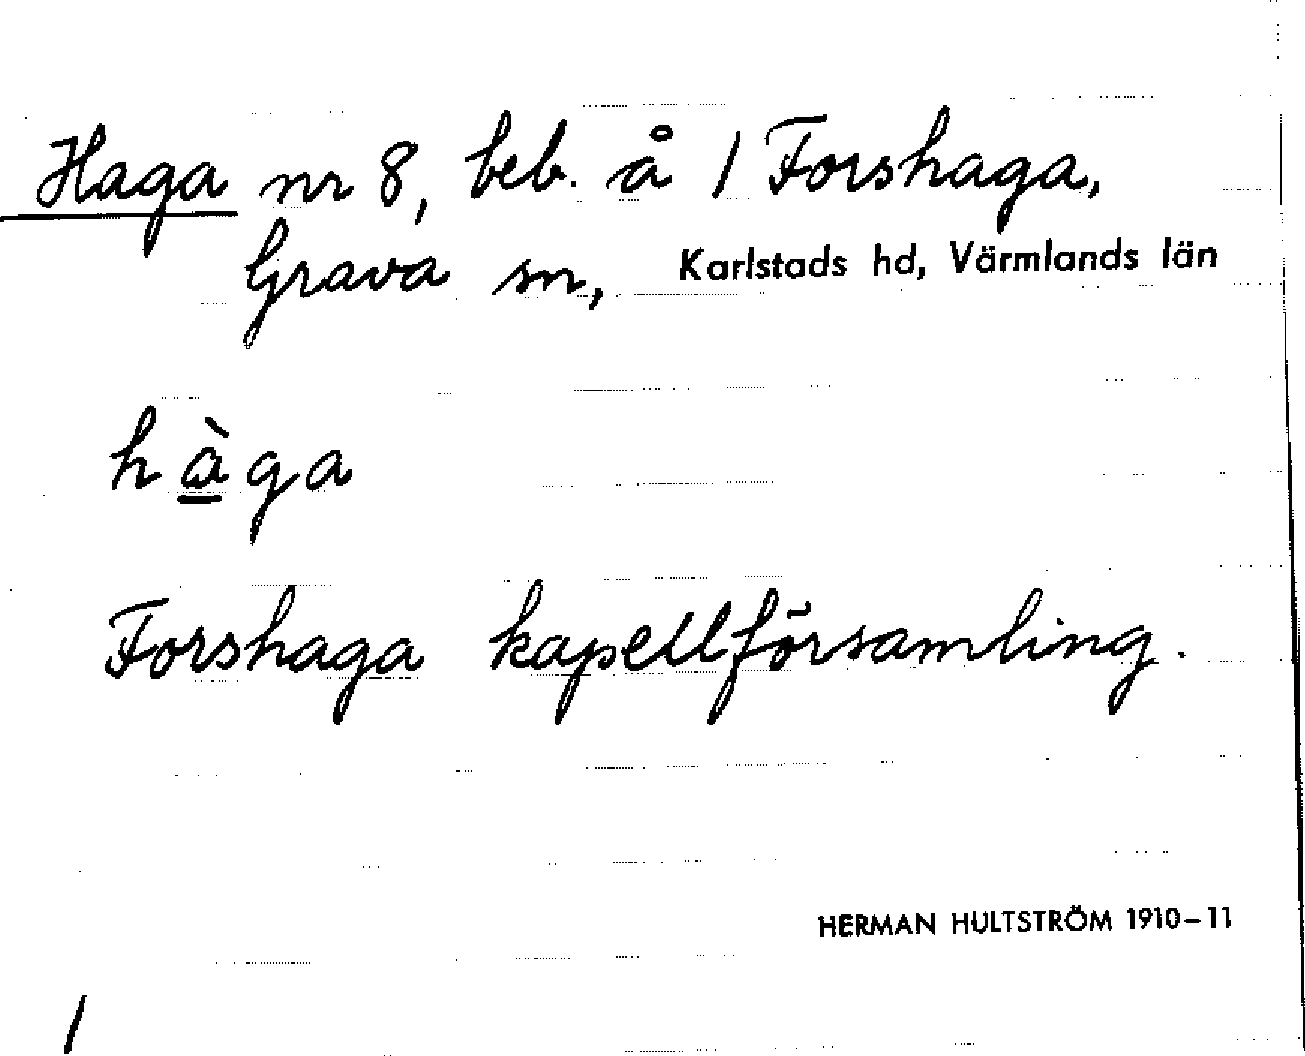 Haga nr 8, beb. å 1 Forshaga,
Grava sn, Karlstads hd, Värmlands län
hàga
Forshaga kapellförsamling.
HERMAN HULTSTRÖM 1910–11
/